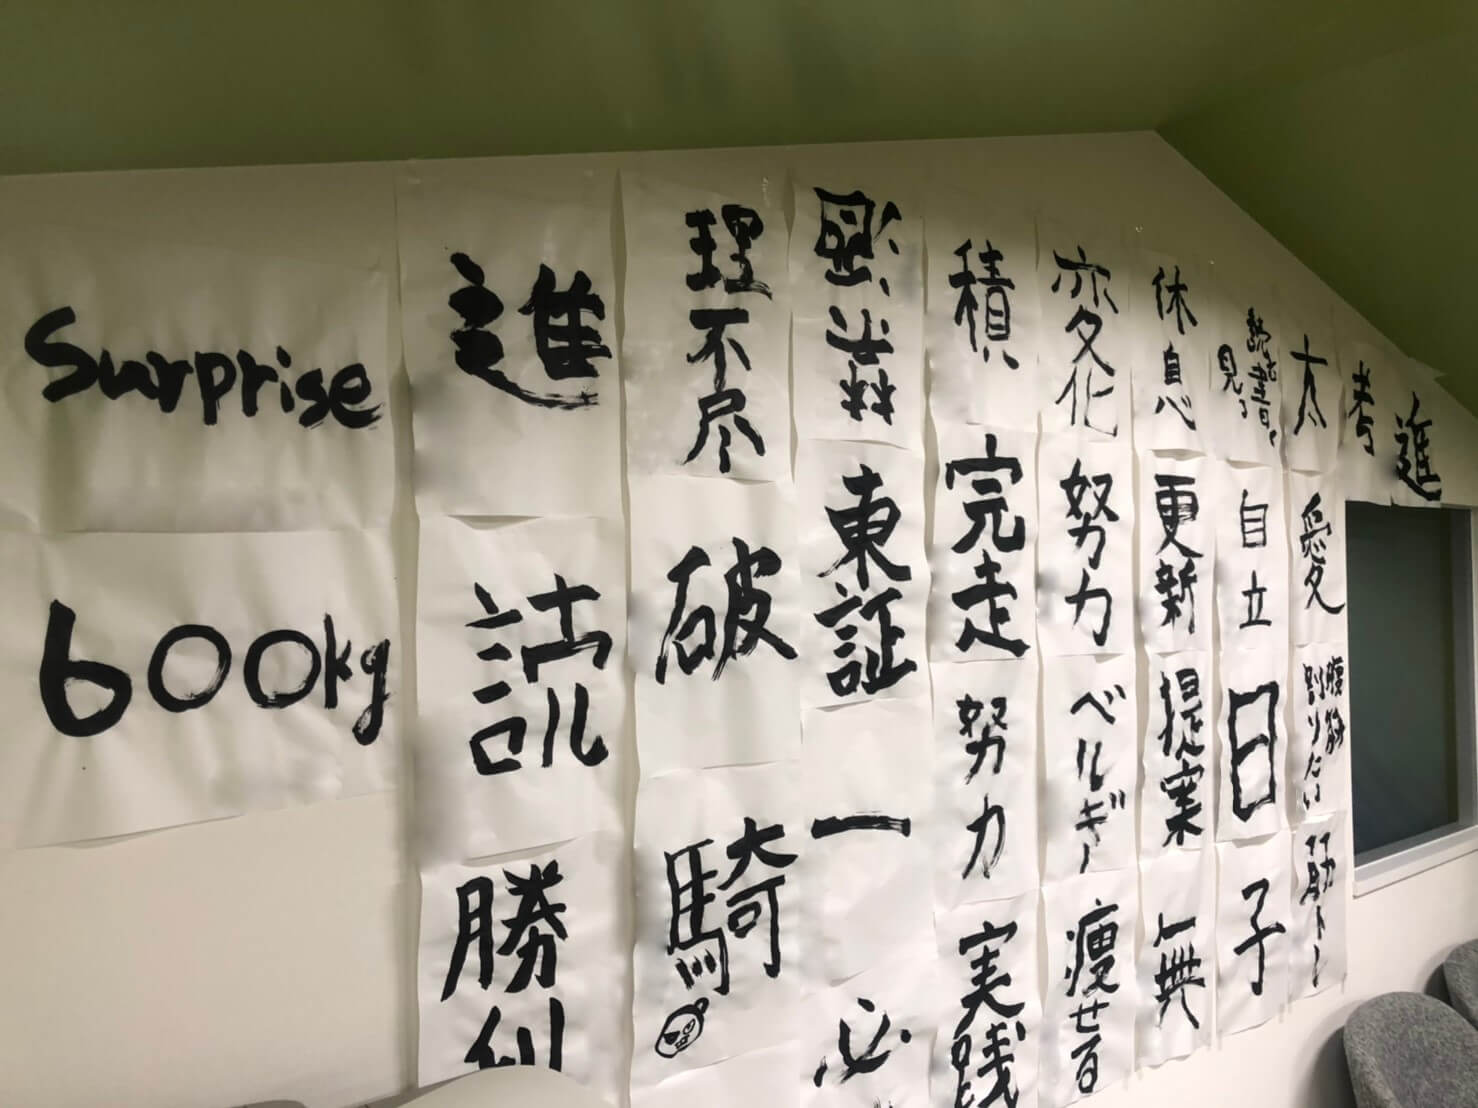 Surprise
600kg
進
読
勝利
理不尽
破
騎
東証
一
必
積
完走
努力
実践
変化
努力
ベルギー
痩せる
休息
更新
提案
無
読む書く
見る
自立
日
子
太
愛
腹筋
割りたい
筋トレ
考
進